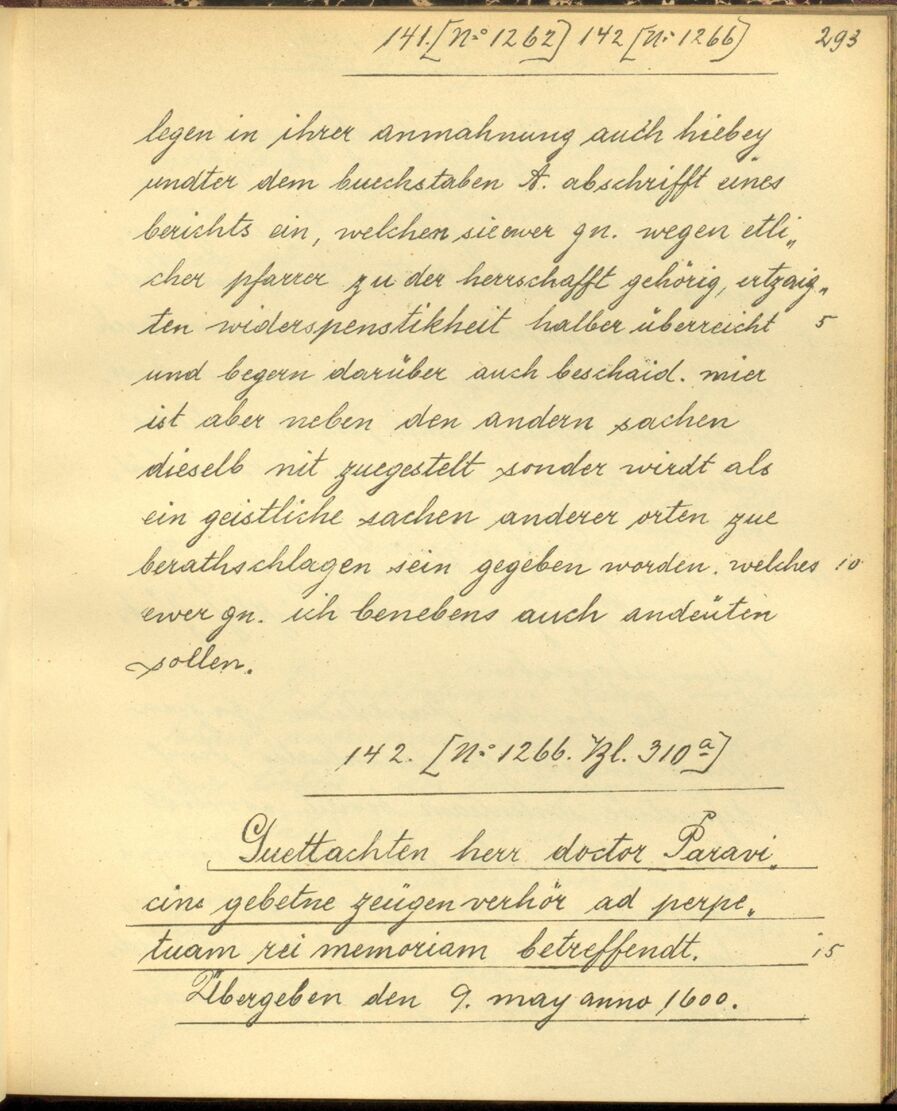 141. [No 1262] 142 [No 1266] 293
legen in ihrer anmahnung auch hiebey
undter dem buechstaben A. abschrifft eines
berichts ein, welchen sie ewer gn. wegen etli„
cher pfarrer zu der herrschafft gehörig, ertzaig„
ten widerspenstikheit halber überreicht 5
und begern darüber auch beschaid. mier
ist aber neben den andern sachen
dieselb nit zuegestelt sonder wirdt als
ein geistliche sachen anderer orten zue
berathschlagen sein gegeben worden. welches 10
ewer gn. ich benebens auch andeüten
sollen.
142. [No 1266. Bl. 310a]
Guettachten herr doctor Paravi„
cins gebetne zeügen verhör ad perpe„
tuam rei memoriam betreffendt. 15
Übergeben den 9. may anno 1600.